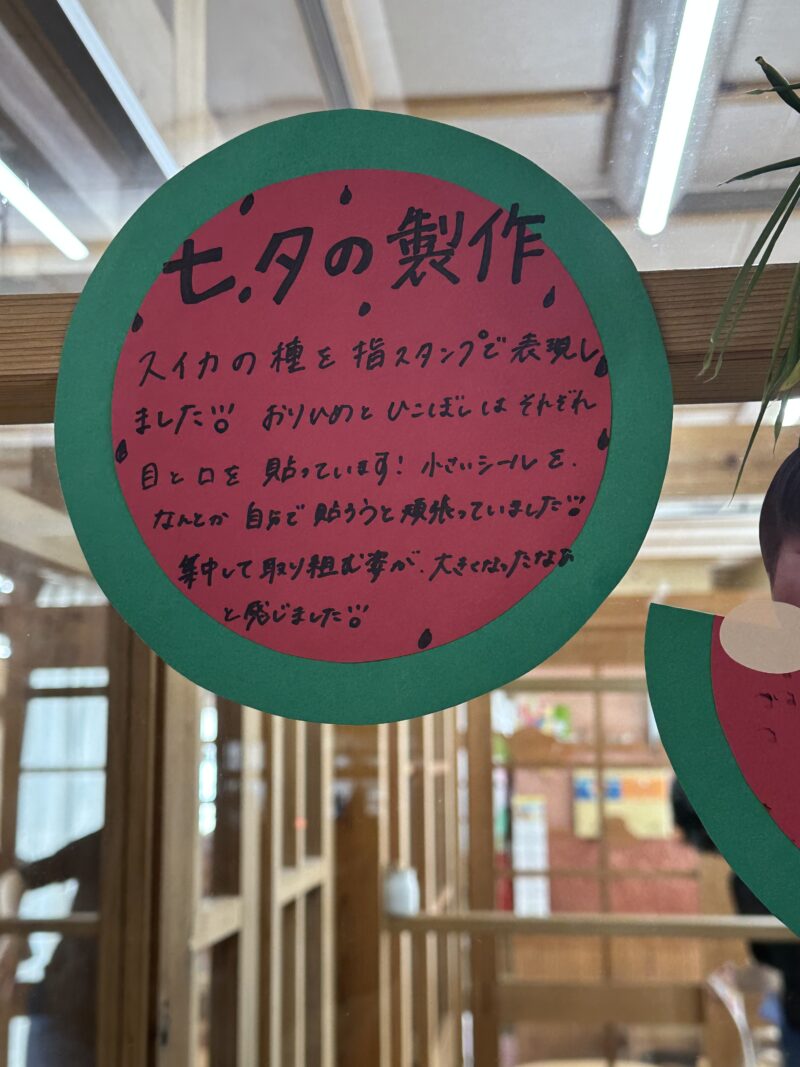 七夕の製作
スイカの種を指スタンプで表現し
ました!! おりひめとひこぼしはそれぞれ
目と口を貼っています! 小さいシールを、
なんとか自分で貼ろうと頑張っていました!!
集中して取り組む姿が、大きくなったなぁ
と感じました!!